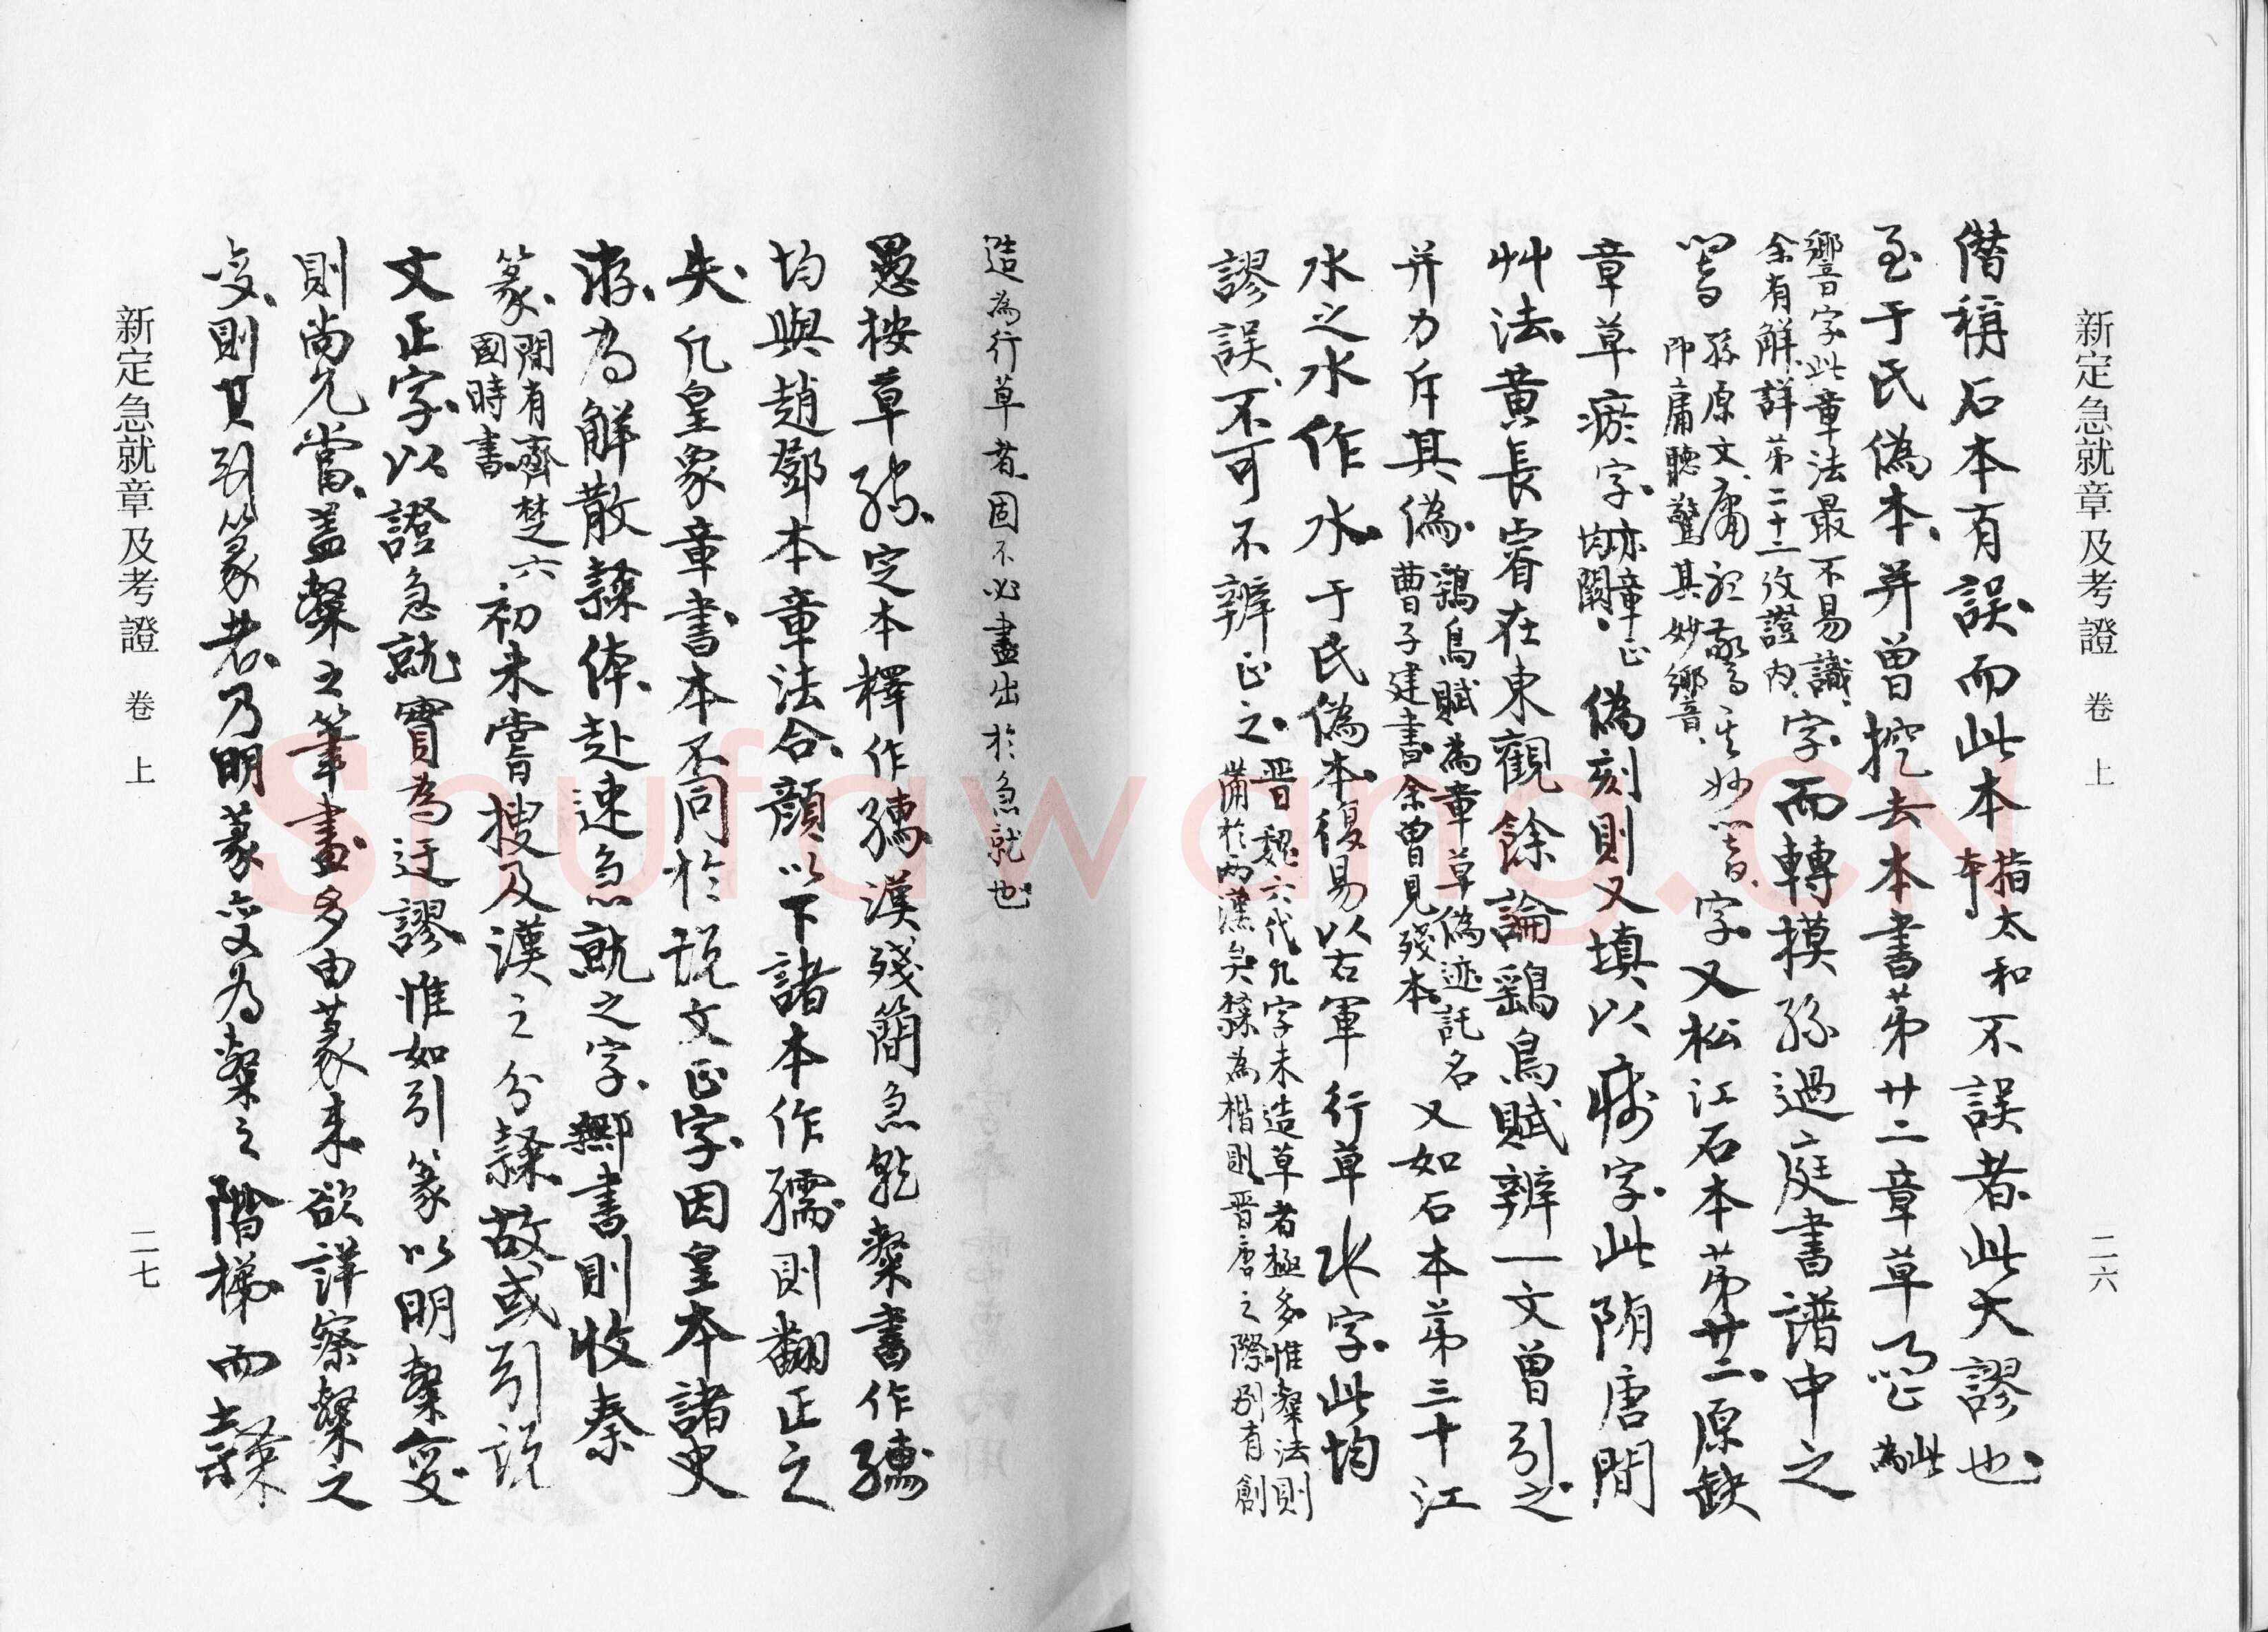 新定急就章及考證　卷上　二六
僭稱石本有誤而此本指太和本不誤者此大謬也
至于氏偽本并曾挖去本書第廿二章草 此為
響音字此章法最不易識
余有解詳第二十二攷證內
字而轉摸孫過庭書譜中之
孫原文庸聽驚其妙響
即庸聽驚其妙響音
字又松江石本第廿二原缺
章草瘀字亦章正均闕偽刻則又填以 字此隋唐間
艸法黃長睿在東觀餘論鷂鳥賦辨一文曾引之
并力斥其偽鷂鳥賦為章草偽迹託名曹子建書余曾見殘本又如石本第三十江
水之水作水于氏偽本復易以右軍行草水字此均
謬誤不可不辨正之晋魏六代凡字未造草者極多惟 法則
備於兩漢矣隸為楷則晋唐之際別有創
造為行草者固不必盡出於急就也
愚按草 定本釋作 漢殘簡急就 書作
均與趙鄧本章法合顏以下諸本作 則翻正之
失凡皇象章書本不同於說文正字因皇本諸史
游為解散隸体赴速急就之字鄉書則收秦
篆間有齊楚六國時書初未嘗搜及漢之分隸故或引說
文正字以證急就實為迂謬惟如引篆以明 變
則尚允當蓋 之筆畫多由篆來欲詳察 之
變則其引篆者乃明篆變為 之階梯而隸
新定急就章及考證　卷上　二七